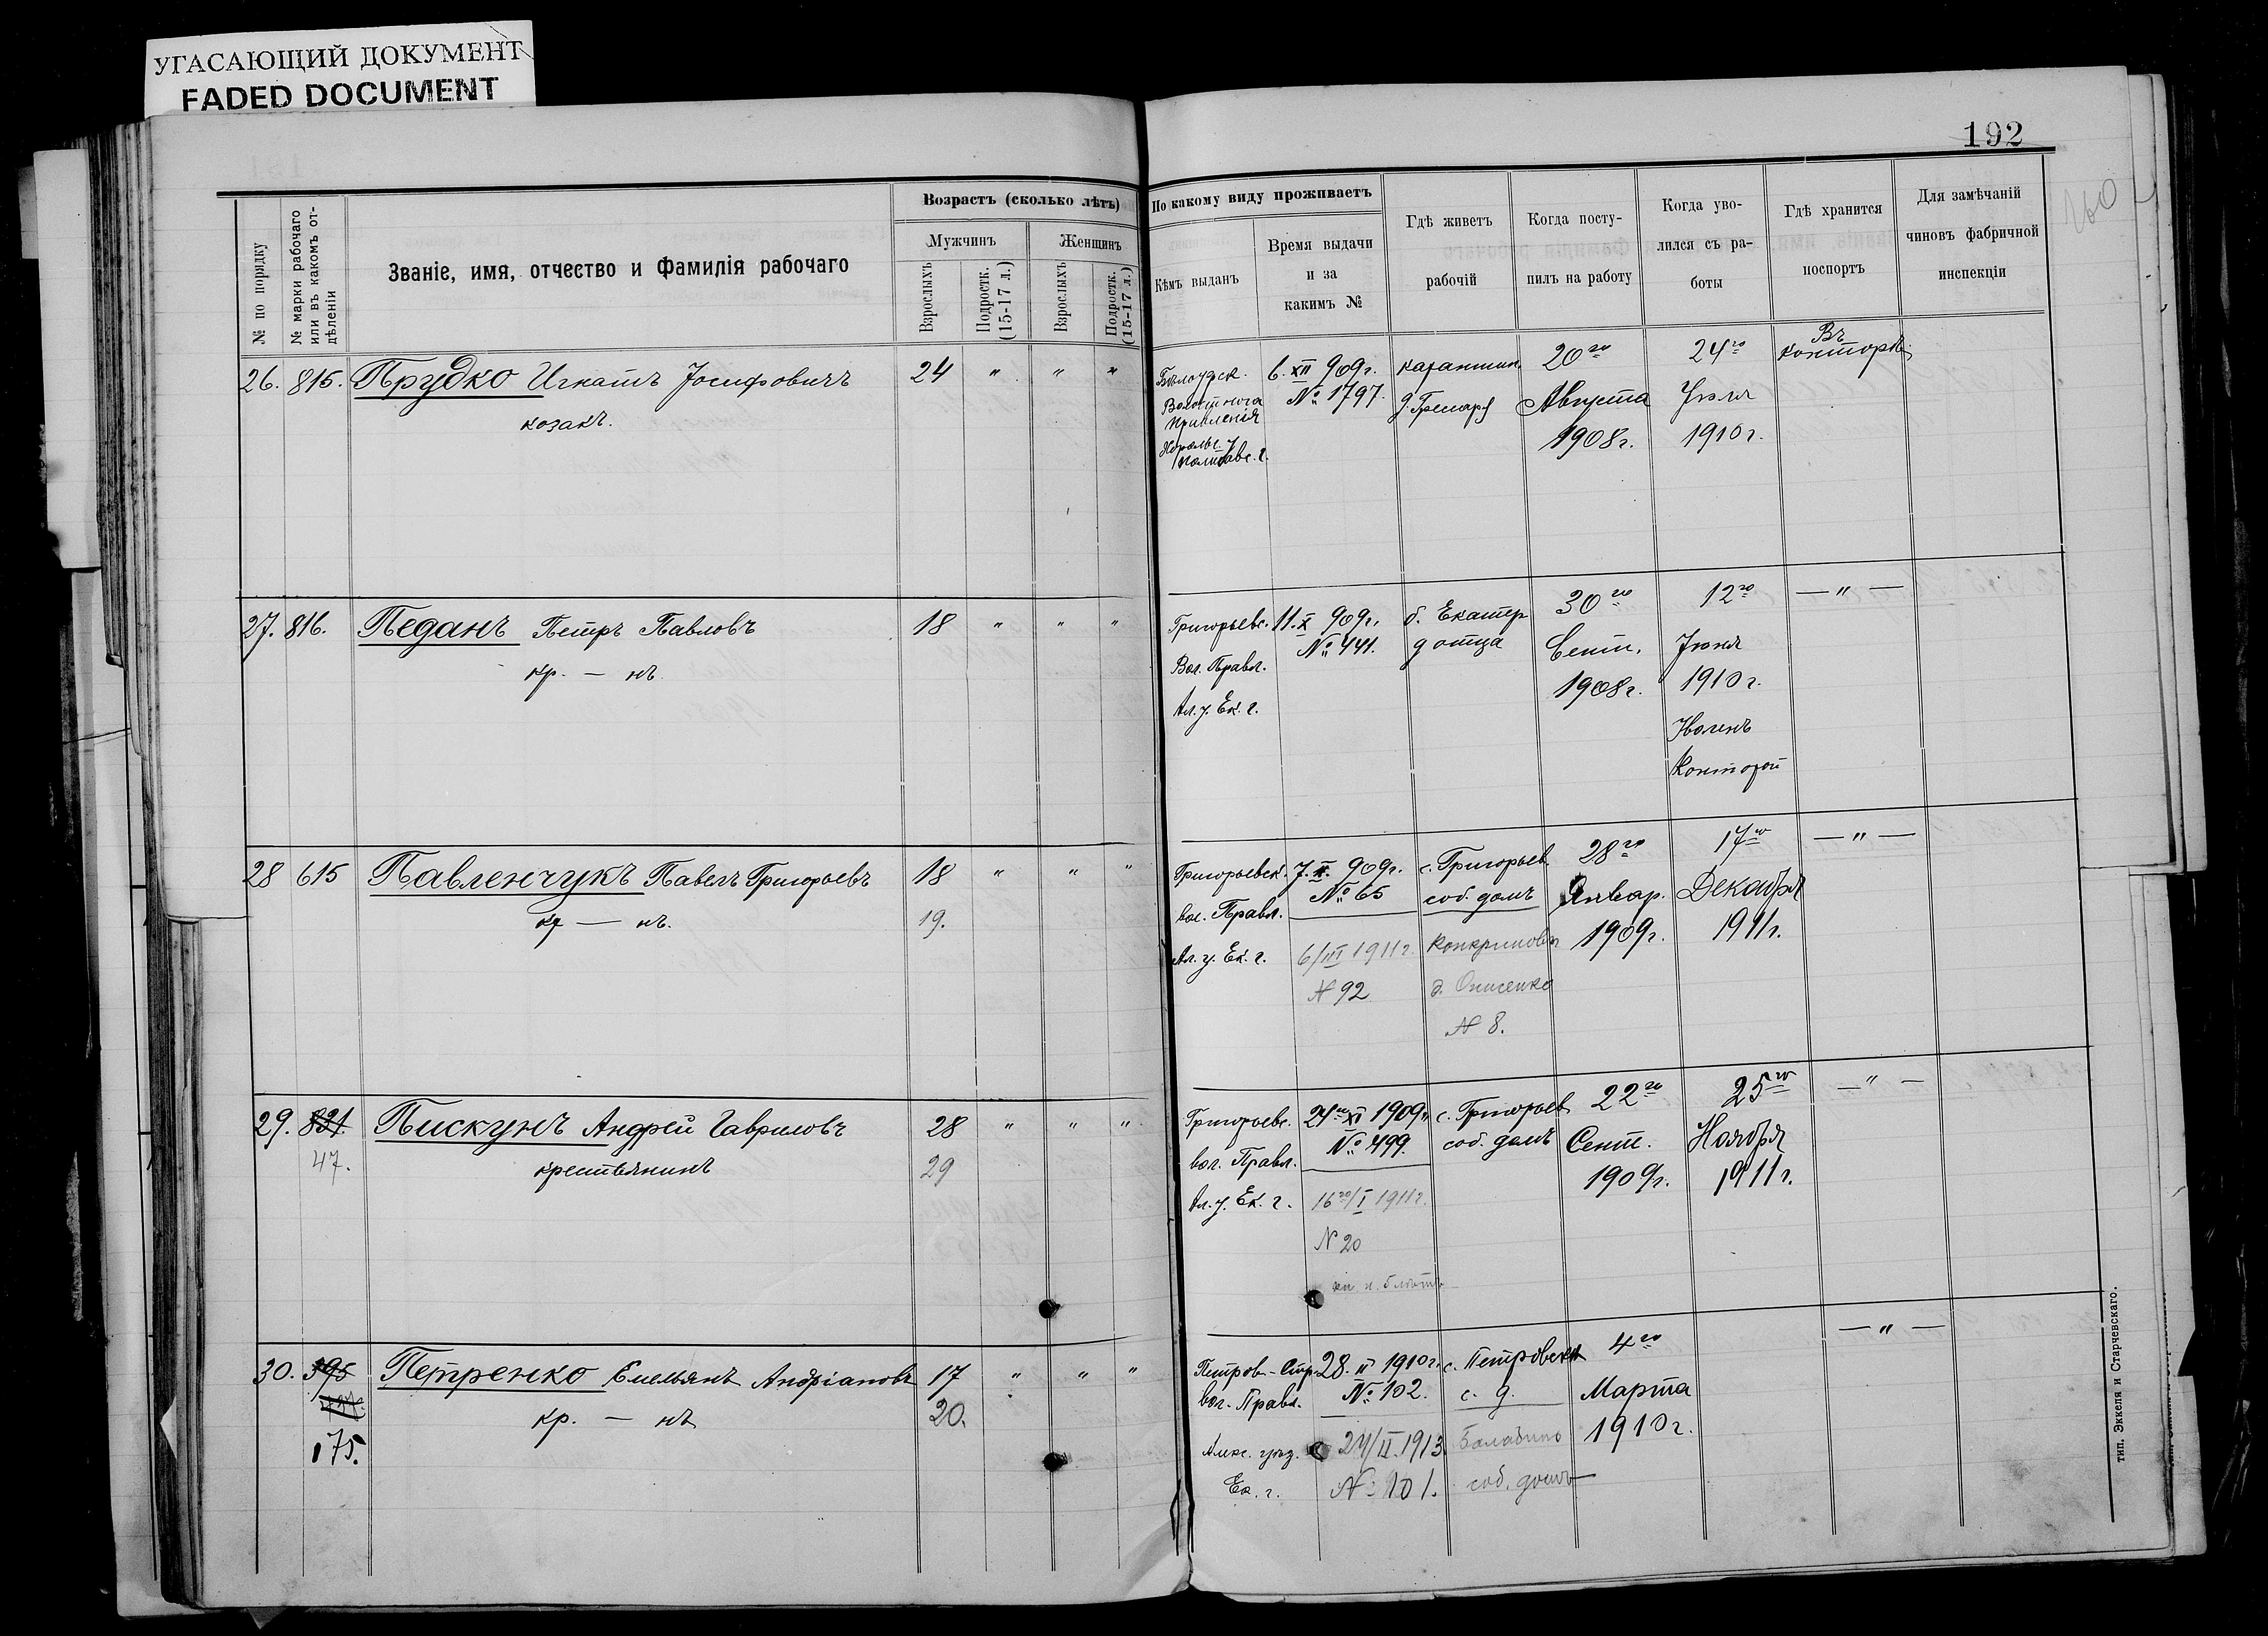 УГАСАЮЩИЙ ДОКУМЕНТ
FADED DOCUMENT
192
160
№ по порядку
№ марки рабочаго или въ какомъ от-дѣленіи
Званіе, имя, отчество и фамилія рабочаго
Возрастъ (сколько лѣтъ)
Мужчинъ
Женщинъ
Взрослыхъ
Подростк. (15-17 л.)
Взрослыхъ
Подростк. (15-17 л.)
По какому виду проживаетъ
Кѣмъ выданъ
Время выдачи
и за
какимъ №
Гдѣ живетъ
рабочій
Когда посту-
пилъ на работу
Когда уво-
лился съ ра-
боты
Гдѣ хранится
поспортъ
Для замѣчаній
чиновъ фабричной
инспекціи
26. 815. Прудко Игнатъ Іосифовичъ 24 " " "
козакъ.
Волостнога
Правленія
6. XII 909 г.
№ 1797.
карантин
20го
Августа
1908 г.
24го
1910 г.
Въ
конторѣ
27. 816. Педанъ Петръ Павловъ 18 " " "
кр. — нъ
Григорьевс.
Вол. Правл.
Ал. у. Ек. г.
11. X 909 г.
№ 441.
б. Екатер
д отца
30го
Сент.
1908 г.
12го
1910 г.
Конторой
— " —
28 615 Павленчукъ Павелъ Григорьевъ 18 " " "
кр — нъ. 19.
Григорьевск.
вол. Правл.
Ал. у. Ек. г.
7. II. 909 г.
№ 65
6/III 1911 г.
N 92
с. Григорьев
соб. домъ
д. Онисенко
N 8.
28го
Январ.
1909 г.
17го
Декабря
1911 г.
— " —
29. 821. Пискунъ Андрей Гавриловъ 28 " " "
47. крестьянинъ 29
Григорьевс.
вол. Правл.
Ал. у. Ек. г.
24го XI 1909 г.
№ 499.
16го/I 1911 г.
N 20
с. Григорьев
соб. домъ
22го
Сент.
1909 г.
25го
Ноября
1911 г.
— " —
30. 395 Петренко Емельянъ Андріановъ 17 " " "
кр. — нъ 20.
175.
Петров-
вол. Правл.
Алекс. уѣзд.
Ек. г.
28. II 1910 г.
№ 102.
24/II. 1913
№ 101.
с. Петровская
с. д.
Балабино
соб. домъ
4го
Марта
1910 г.
— " —
тип. Эккеля и Старчевскаго.